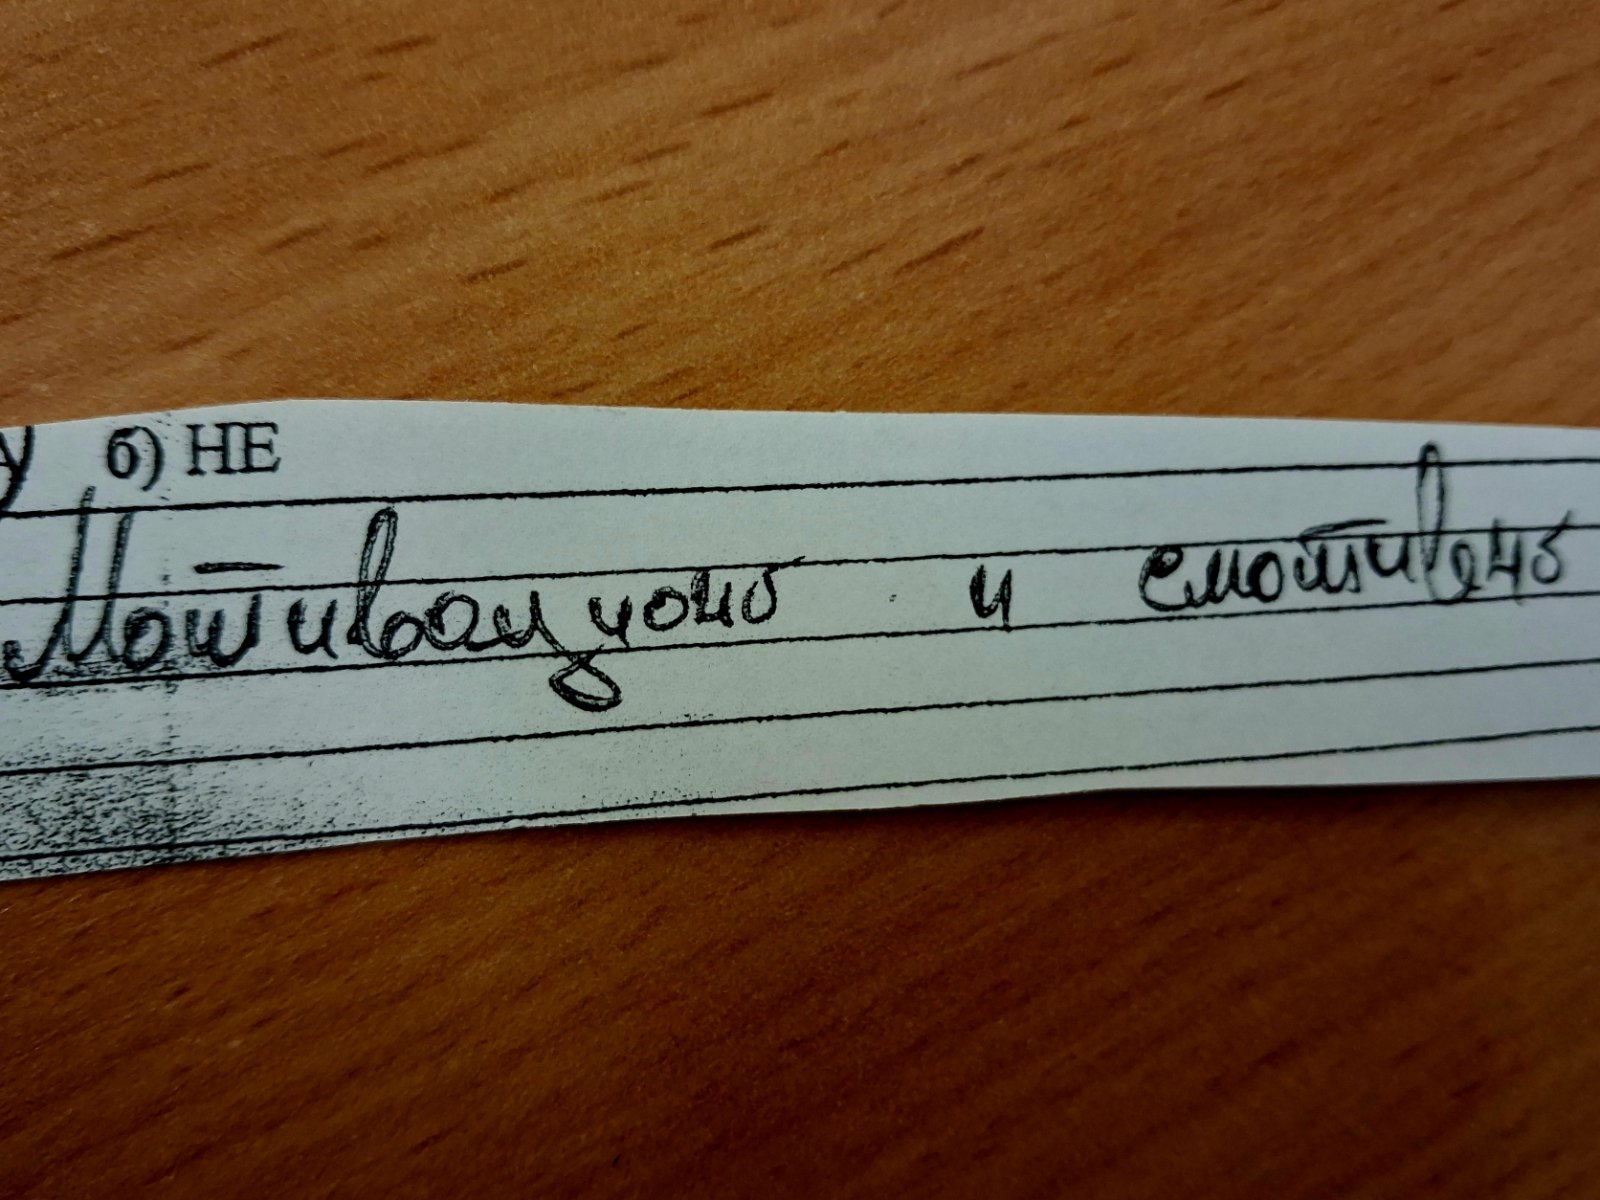 б) НЕ
Мотивационо и емотивно